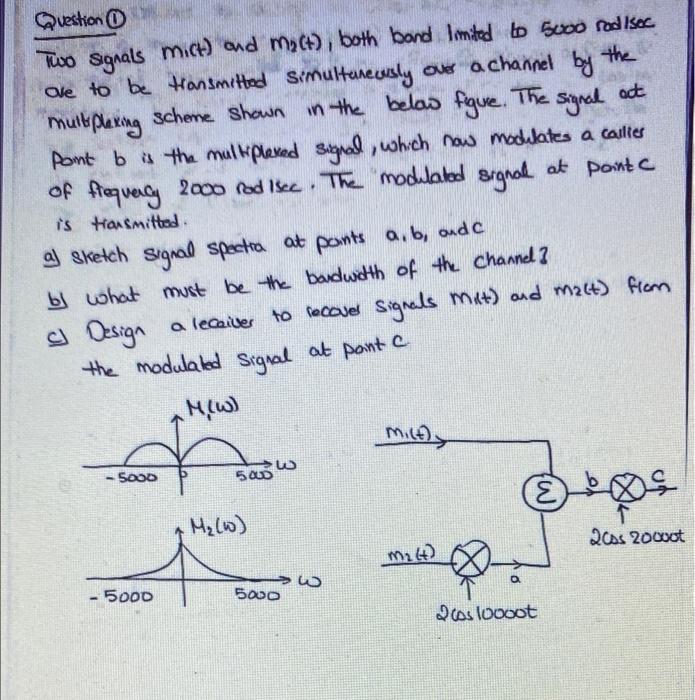 Question ①
Two signals m1(t) and m2(t), both band limited to 5000 rad/sec
are to be transmitted simultaneously over a channel by the
multiplexing scheme shown in the below figure. The signal at
point b is the multiplexed signal, which now modulates a carrier
of frequency 2000 rad/sec. The modulated signal at point c
is transmitted.
a) sketch signal spectra at points a, b, and c
b) what must be the bandwidth of the channel?
c) Design a receiver to recover signals m1(t) and m2(t) from
the modulated signal at point c
M1(ω)
-5000 0 5000 ω
M2(ω)
-5000 5000 ω
m1(t)
Σ b c
2cos 20000t
m2(t) a
2cos10000t